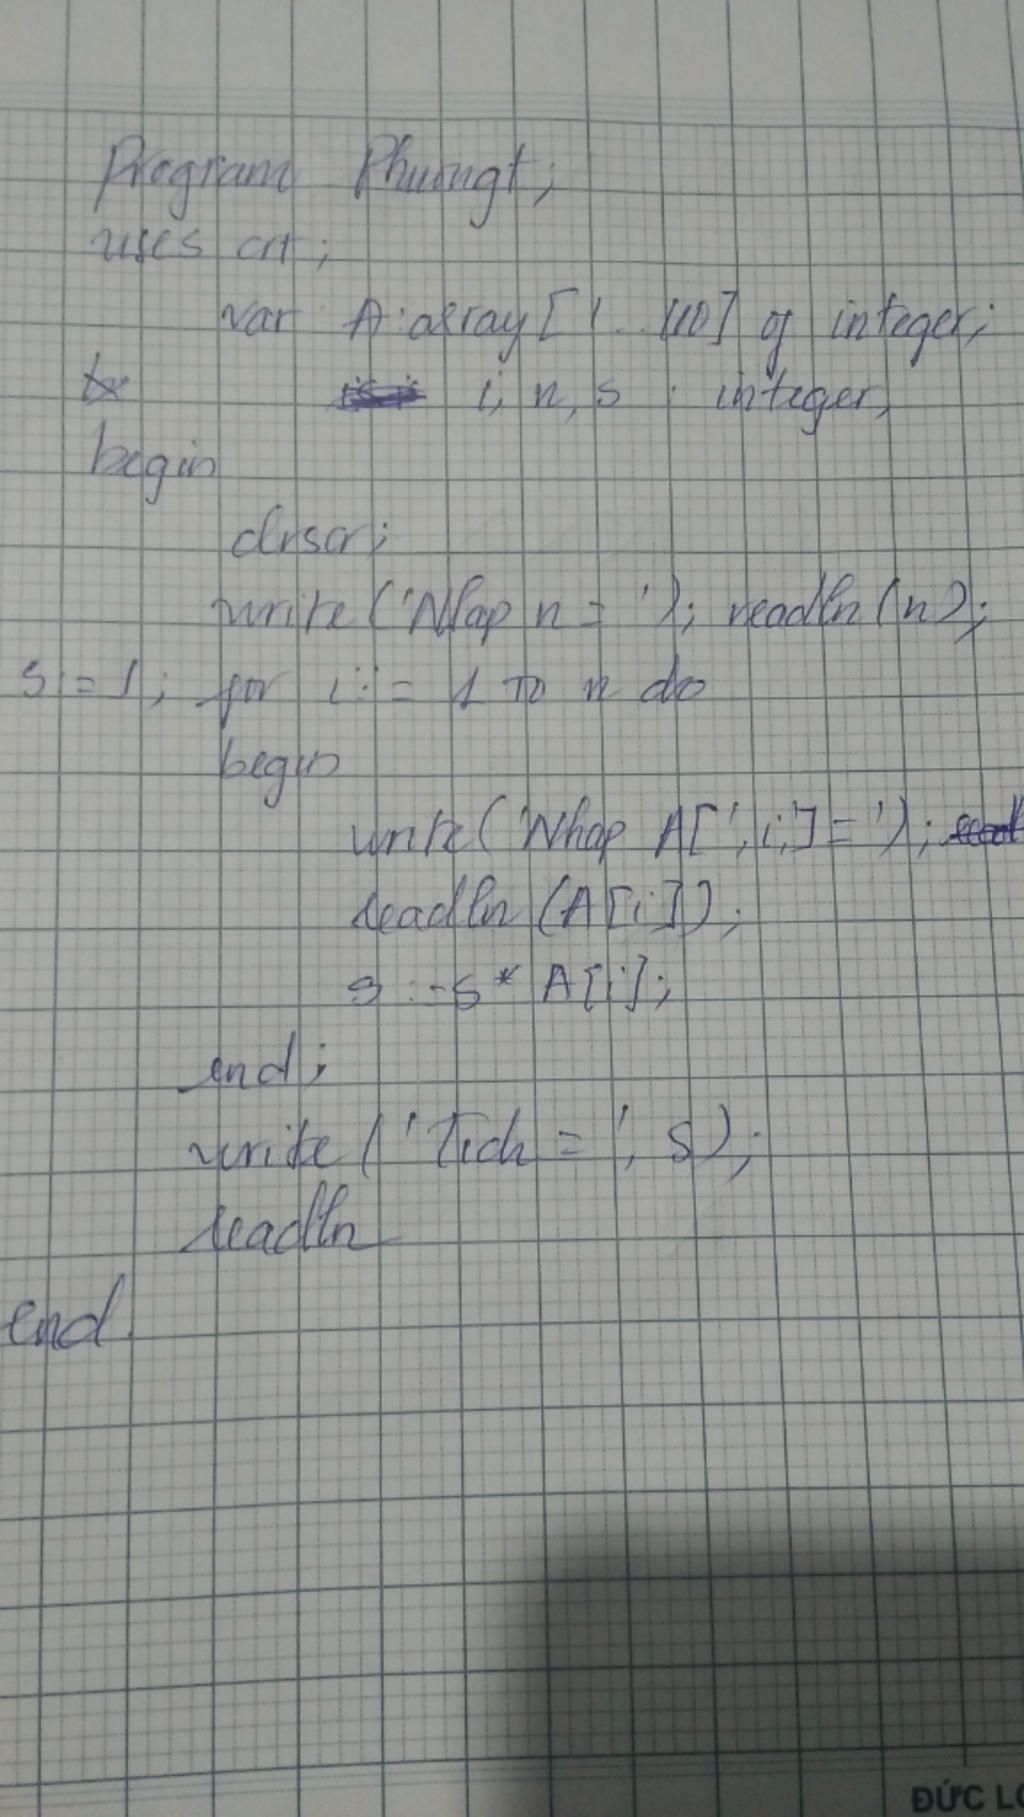 Program Phuongt;
uses crt;
var A: array [1..110] of integer;
i, n, s : integer;
begin
clrscr;
write ('Nhap n = '); readln (n);
s := 1; for i := 1 to n do
begin
write ('Nhap A[', i, '] = ');
readln (A[i]);
s := s * A[i];
end;
write ('Tich = ', s);
readln
end.
ĐỨC LO